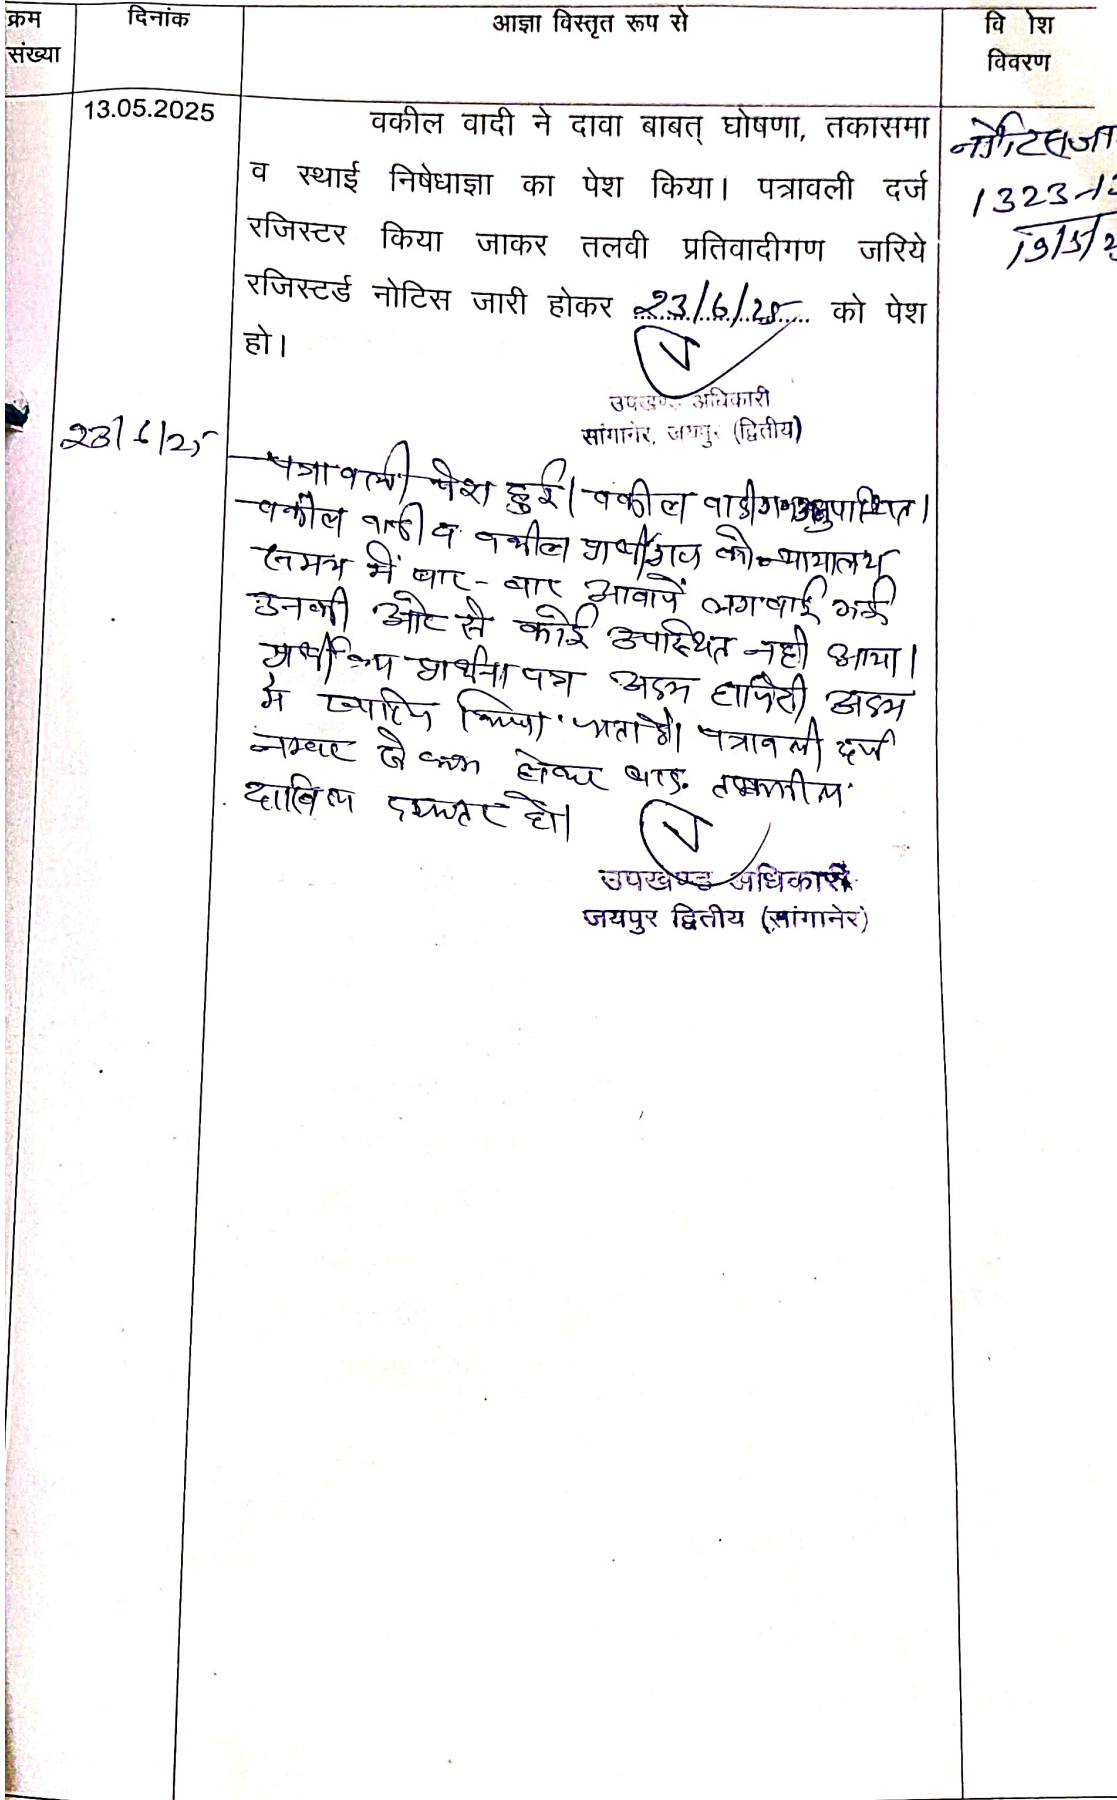 क्रम संख्या
दिनांक
आज्ञा विस्तृत रूप से
वि ोश
विवरण
13.05.2025
वकील वादी ने दावा बाबत् घोषणा, तकासमा
व स्थाई निषेधाज्ञा का पेश किया। पत्रावली दर्ज
रजिस्टर किया जाकर तलवी प्रतिवादीगण जरिये
रजिस्टर्ड नोटिस जारी होकर 23/6/25 को पेश
हो।
नोटिस जा
1323-1
19/5/2
उपखण्ड अधिकारी
सांगानेर, जयपुर (द्वितीय)
23/6/25
पत्रावली पेश हुई। वकील वादीगण अनुपस्थित।
वकील वादी व वकील प्रार्थीगण को न्यायालय
समय में बार-बार आवाजें लगवाई गई
उनकी ओर से कोई उपस्थित नही आया।
प्रार्थना पत्र अदम हाजिरी अदम
में खारिज किया जाता है। पत्रावली दर्ज
नम्बर से कम होकर बाद तकमील
दाखिल दफ्तर हो।
उपखण्ड अधिकारी
जयपुर द्वितीय (सांगानेर)